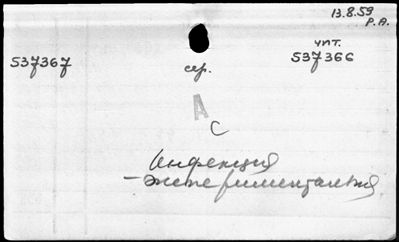 13.8.59
Р.А.
чит.
537367 сер. 537366
А
С
Инфекция
- экспериментальная